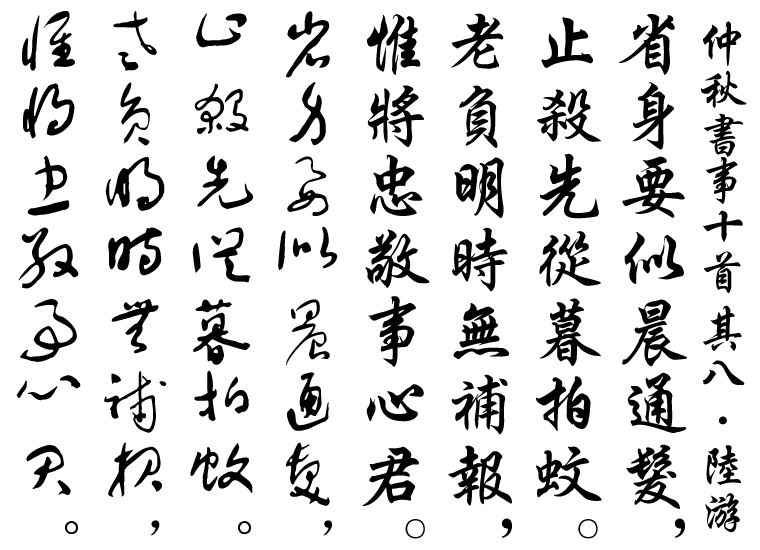 仲秋書事十首其八・陸游
省身要似晨通髮，
止殺先從暮拍蚊。
老負明時無補報，
惟將忠敬事心君。
省身要似晨通髮，
止殺先從暮拍蚊。
老負明時無補報，
惟將忠敬事心君。